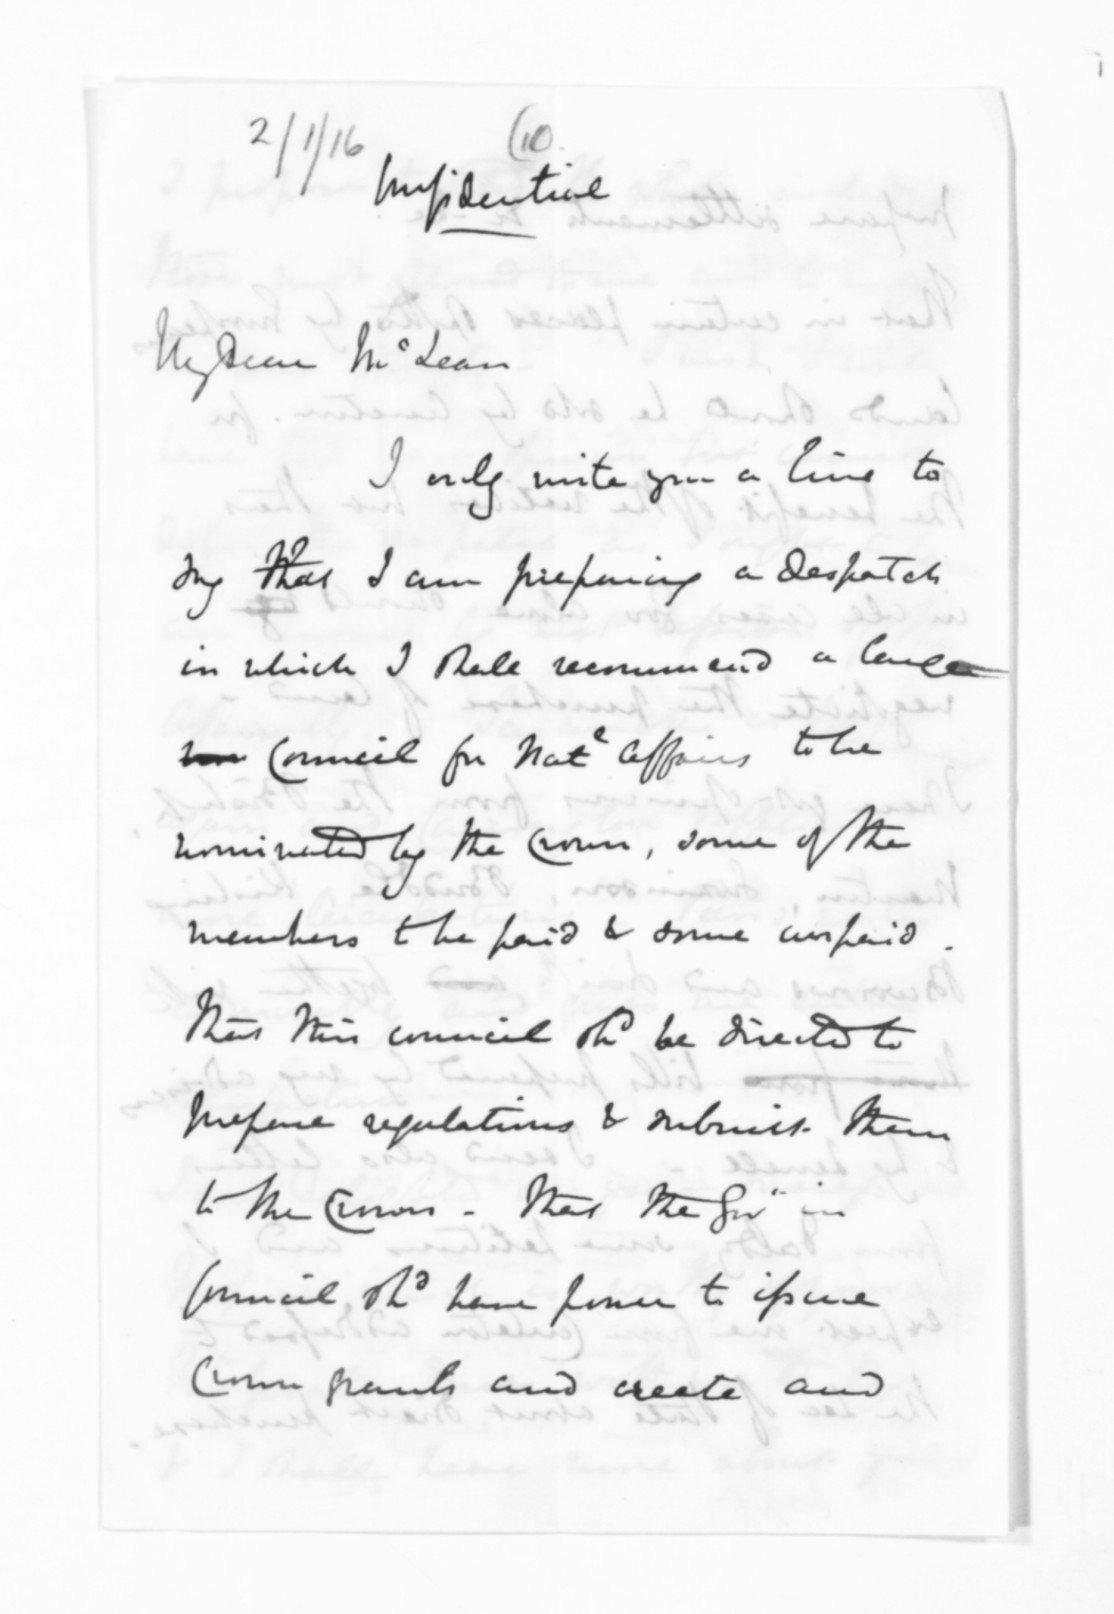 2/1/16
(10.
Confidential
My Dear McLean
I only write you a line to
say that I am preparing a despatch
in which I shall recommend a
Council for Nate affairs to be
nominated by the Crown, some of the
members to be paid & some unpaid.
That this council shd be directed to
prepare regulations & submit them
to the Crown - That the Govr in
Council shd have power to issue
Crown grants and create and